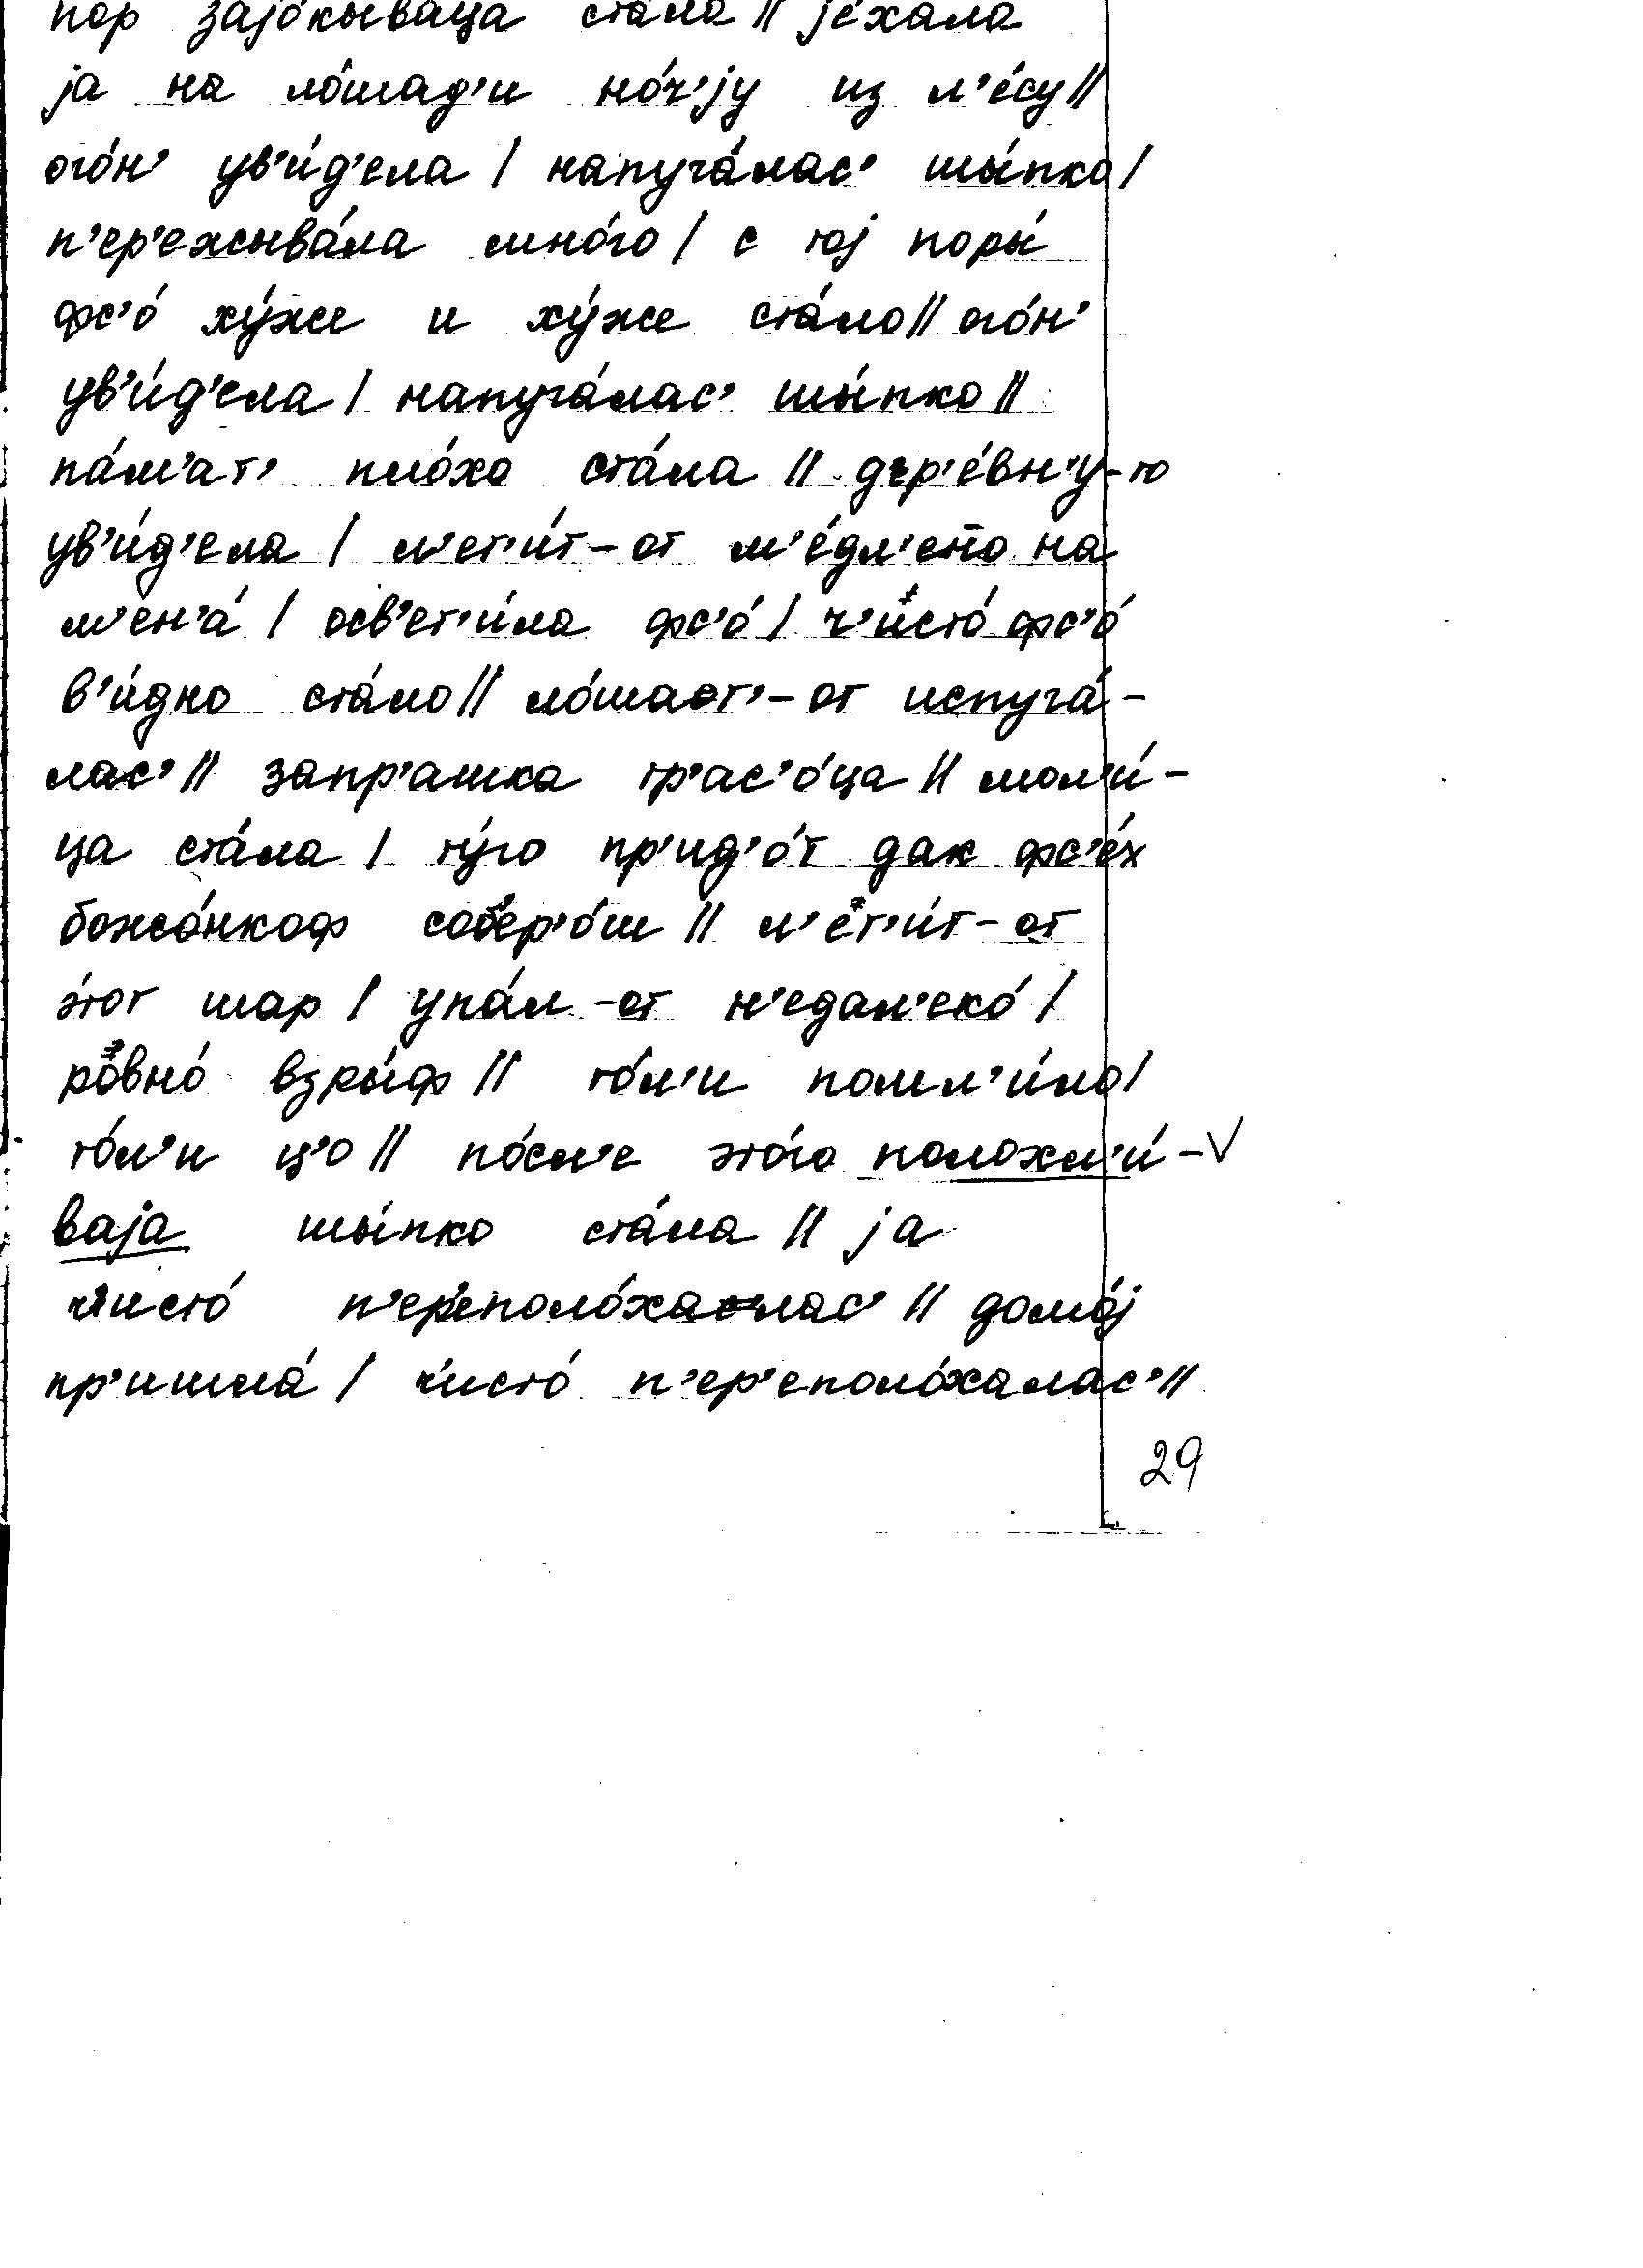 пор зајо́кываца ста́ла // је́хала
ја на ло́шад'и но́ч'ју из л'е́су //
ого́н' ув'и́д'ела / напуга́лас' шы́пко /
п'ер'ежыва́ла мно́го / с тој поры́
фс'о́ ху́же и ху́же ста́ло // ого́н'
ув'и́д'ела / напуга́лас' шы́пко //
па́м'ат' пло́хо ста́ла // д'ер'е́вн'у-то
ув'и́д'ела / л'ет'и́т-от м'е́дл'ено на
м'ен'а́ / осв'ет'и́ла фс'о́ / ч'исто́ фс'о́
в'и́дно ста́ло // ло́шаот'-от испуга́-
лас' // запр'ашка тр'ас'о́ца // мол'и́-
ца ста́ла / ту́го пр'ид'о́т дак фс'е́х
божо́нкоф собер'о́ш // л'ет'и́т-от
э́тот шар / упа́л -от н'едал'еко́ /
ровно́ взры́ф // то́л'и помл'и́ло /
то́л'и ц'о // по́сл'е это́го полохл'и́-
ваја шы́пко ста́ла // ја
ч'исто́ п'ер'еполо́халас' // домо́ј
пр'ишла́ / ч'исто́ п'ер'еполо́халас' //
29